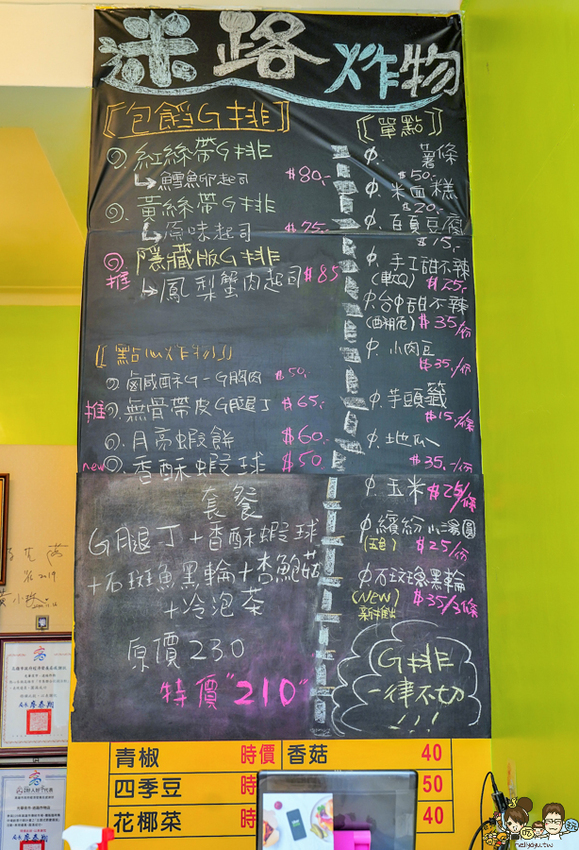 迷路炸物
〖包餡G排〗
紅絲帶G排
鱈魚卵起司 $80.-
黃絲帶G排
原味起司 $75.-
推 隱藏版G排
鳳梨蟹肉起司 $85
〖點心炸物〗
鹵咸酥G-G胸肉 $50.-
推 無骨帶皮G腿丁 $65.-
月亮蝦餅 $60.-
new 香酥蝦球 $50
套餐
G腿丁+香酥蝦球
+石斑魚黑輪+杏鮑菇
+冷泡茶
原價230
特價"210"
〖單點〗
薯條
$50.-
米血糕
$20.-
百頁豆腐
$15.-
手工甜不辣
(軟Q) $25.-
台中甜不辣
$35/份
小肉豆
$35.-/份
芋頭籤
$15/條
地瓜
$35.-/份
玉米 $25/條
繽紛小湯圓
(五色) $25/份
石斑魚黑輪
(NEW) $35/3條
G排
一律不切
!!!
青椒 時價 香菇 40
四季豆 時 50
花椰菜 時 40
nellydyu.tw